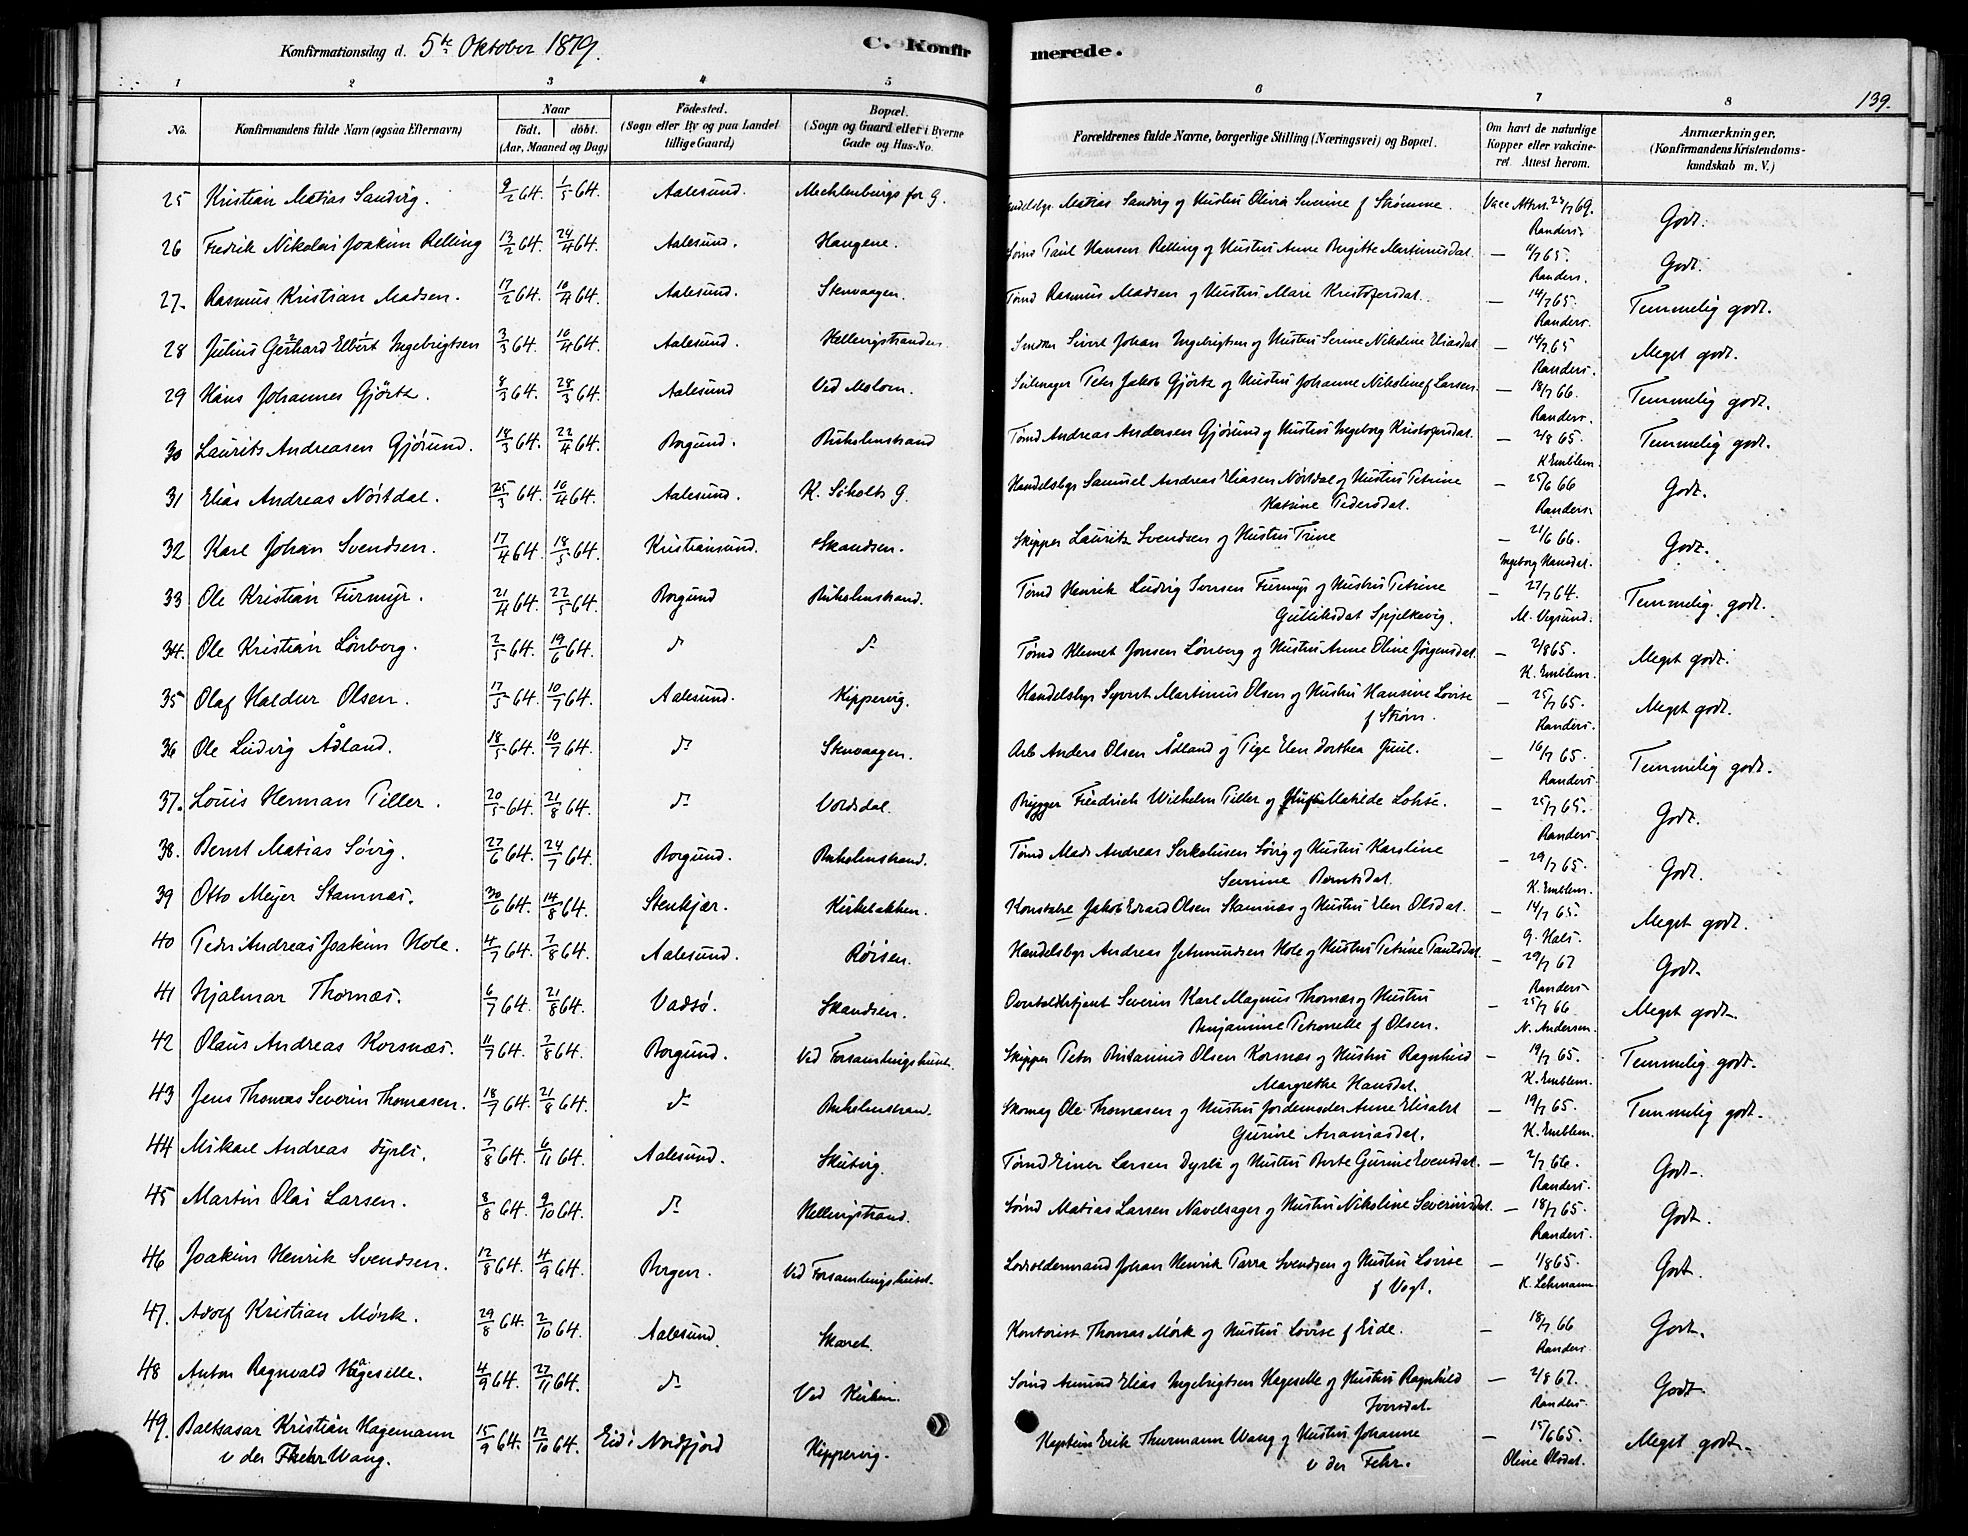 Konfirmationsdag d. 5te Oktober 1879.
C. Konfirmerede.
139.
1 2 3 4 5 6 7 8
No.
Konfirmandens fulde Navn (ogsaa Efternavn)
Naar
født. døbt.
(Aar, Maaned og Dag)
Fødested.
(Sogn eller By og paa Landet
tillige Gaard)
Bopæl.
(Sogn og Gaard eller i Byerne
Gade og Hus-No.
Forældrenes fulde Navne, borgerlige Stilling (Næringsvei) og Bopæl.
Om havt de naturlige
Kopper eller vakcine-
ret. Attest herom.
Anmærkninger.
(Konfirmandens Kristendoms-
kundskab m. V.)
25 Kristian Matias Sandvig. 9/2 64. 1/5 64. Aalesund. Mechlenburgs for G. Matias Sandvig og Hustru Olivia Severine f Strømme. Vacc Attest 69. Godt.
Randers.
26 Fredrik Nikolai Joakim Relling 13/2 64. 24/4 64. Aalesund. Haugene. Paul Hansen Relling og Hustru Anne Birgitte Martinusdat. — 11/7 65. Godt.
Randers.
27. Rasmus Kristian Madsen. 17/2 64. 10/4 64. Aalesund. Stenvaagen. Tømd Rasmus Madsen og Hustru Mari Kristofersdat. — 14/7 65. Temmelig godt.
Randers.
28 Julius Gerhard Elbert Ingebrigtsen 3/3 64. 10/4 64. Aalesund. Hellevigstranden Sivert Johan Ingebrigtsen og Hustru Serine Nikoline Eliasdat — 14/7 65 Meget godt.
Randers.
29 Hans Johannes Gjörtz. 8/3 64. 28/3 64. Aalesund Ved Moloen. Seilmager Peter Jakob Gjörtz og Hustru Johanne Nikoline f Larsen. — 18/7 66. Temmelig godt.
Randers.
30 Laurits Andreasen Gjørund. 18/3 64. 22/4 64. Borgund. Buholmstrand Tømd Andreas Andersen Gjørund og Hustru Ingeborg Kristofersdat. — 2/8 65. Temmelig godt.
K Emblem.
31 Elias Andreas Nørsdal. 25/3 64. 10/4 64. Aalesund. K. Søholts G. Handelsbgr Samuel Andreas Eliasen Nørsdal og Hustru Petrine — 25/6 66 Godt.
Katrine Pedersdat. Randers.
32 Karl Johan Svendsen. 17/4 64. 18/5 64. Kristiansund. Skandsen. Skipper Lauritz Svendsen og Hustru Trine — 21/6 66. Godt.
Ingeborg Hansdat.
33 Ole Kristian Furmyr. 21/4 64. 22/5 64. Borgund Buholmstrand. Tømd Henrik Ludvig Iversen Furmyr og Hustru Petrine — 27/7 64. Temmelig godt.
Gulliksdat Spjelkevig. M. Vegsund.
34. Ole Kristian Lønberg. 2/5 64. 19/6 64. do do Tømd Klemet Jonsen Lønberg og Hustru Anne Oline Jørgensdat. — 2/8 65. Meget godt.
K. Emblem.
35 Olaf Haldur Olsen. 17/5 64. 10/7 64. Aalesund. Kippervig. Handelsbgr Syvert Martinus Olsen og Hustru Hansine Lovise — 25/7 65. Meget godt.
f Strøm. Randers.
36 Ole Ludvig Ådland. 18/5 64. 10/7 64. do Stenvaagen. Arb Anders Olsen Ådland og Pige Elen Dorthea Juul. — 16/7 65. Temmelig godt.
Randers.
37. Louis Herman Tiller. 20/5 64. 21/8 64. do Voldsdal. Brygger Friedrich Wilhelm Tiller og Hustru Matilde Lohse. — 25/7 65. Godt.
Randers.
38. Bernt Matias Søvig. 27/6 64. 24/7 64. Borgund. Buholmstrand. Tømd Mads Andreas Søvig og Hustru Karoline — 29/7 65. Godt.
Severine Berntsdat. K. Emblem.
39 Otto Meyer Stamnæs. 30/6 64. 14/8 64. Stenkjær. Kirkebakken. Konstabel Jakob Edvard Olsen Stamnæs og Hustru Elen Olsdat. — 14/7 65. Meget godt.
G. Hals.
40 Peder Andreas Joakim Hole. 4/7 64. 7/8 64. Aalesund. Røisen. Handelsbgr Andreas Jetmundsen Hole og Hustru Petrine Paulsdat. — 29/7 67 Godt.
Randers
41 Hjalmar Thomæs. 6/7 64. 21/8 64. Vadsø. Skandsen. Overtoldbetjent Severin Karl Magnus Thomæs og Hustru — 25/7 66 Meget godt.
Benjamine Petronelle f Olsen. N. Andersen.
42 Olaus Andreas Korsnæs. 11/7 64. 7/8 64. Borgund. Ved Forsamlingshuset. Skipper Peter Olsen Korsnæs og Hustru Ragnhild — 19/7 65. Temmelig godt.
Margrethe Hansdat. K. Emblem.
43 Jens Thomas Severin Thomasen. 18/7 64. 21/8 64. do Buholmstrand. Skomag Ole Thomasen og Hustru Jordemoder Anne Elisabet — 19/7 65. Temmelig godt.
Gurine Ananiasdat. K. Emblem.
44 Mikael Andreas Dyrli. 7/8 64. 6/11 64. Aalesund. Skutvig. Tømd Einer Larsen Dyrli og Hustru Berte Gurine Evensdat. — 2/7 66. Godt.
Randers.
45 Martin Olai Larsen. 8/8 64. 9/10 64. do Hellevigstrand. Tømd Matias Larsen Navelsager og Hustru Nikoline Severinsdat. — 18/7 65. Godt.
Randers.
46 Joakim Henrik Svendsen. 12/8 64. 4/9 64. Bergen. Ved Forsamlingshuset. Lodsoldermand Johan Henrik Parra Svendsen og Hustru Lovise — 1/8 65. Godt.
f Vogt. K. Lehmann
47. Adolf Kristian Mørk. 29/8 64. 2/10 64. Aalesund. Skaret. Kontorist Thomas Mørk og Hustru Lovise f Eide. — 18/7 66 Godt.
Randers
48 Anton Ragnvald Hageselle. 4/9 64. 27/11 64. do Ved Kirken. Tømd Amund Elias Ingebrigtsen Hageselle og Hustru Ragnhild — 2/8 67. Godt.
Iversdat. Randers.
49. Baltsasar Kristian Hagemann 15/9 64. 12/10 64. Eid i Nordfjord Kippervig. Kaptein Erik Thurmann Wang og Hustru Johanne — 15/6 65. Meget godt.
v der Fehr Wang. v der Fehr. Oline Olsdat.